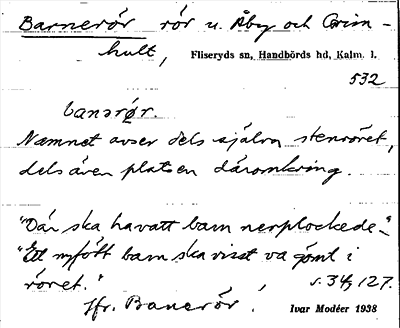 Barnerör rör u. Åby och Grim-
hult,
Fliseryds sn, Handbörds hd, Kalm. l.
532
banərør.
Namnet avser dels själva stenröret,
dels även platsen däromkring.
"Där ska ha vatt barn nerplockede."
"Ett nyfött barn ska visst va gömt i
röret."
s. 34, 127.
Jfr. Banerör.
Ivar Modéer 1938